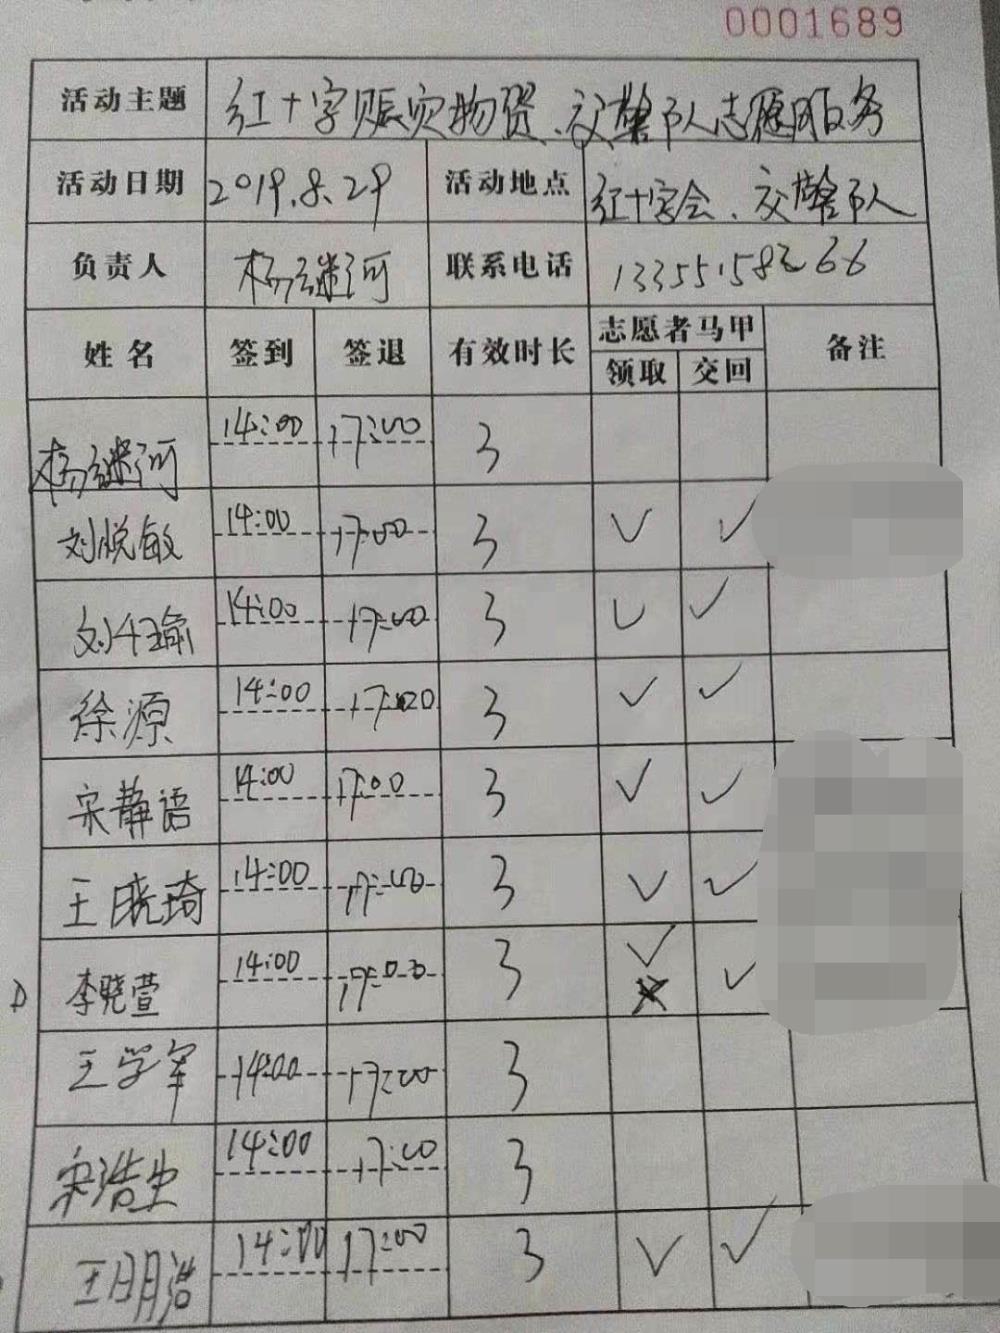 0001689
活动主题 红十字赈灾物资、交警队志愿服务
活动日期 2019.8.29 活动地点 红十字会、交警队
负责人 杨继河 联系电话 13355158266
姓名 签到 签退 有效时长 志愿者马甲 备注
领取 交回
杨继河 14:00 17:00 3
刘悦敏 14:00 17:00 3 ✓ ✓
刘 14:00 17:00 3 ✓ ✓
徐源 14:00 17:00 3 ✓ ✓
宋静语 14:00 17:00 3 ✓ ✓
王晓琦 14:00 17:00 3 ✓ ✓
李晓萱 14:00 17:00 3 ✓ ✓
王学军 14:00 17:00 3
宋浩 14:00 17:00 3
王明浩 14:00 17:00 3 ✓ ✓